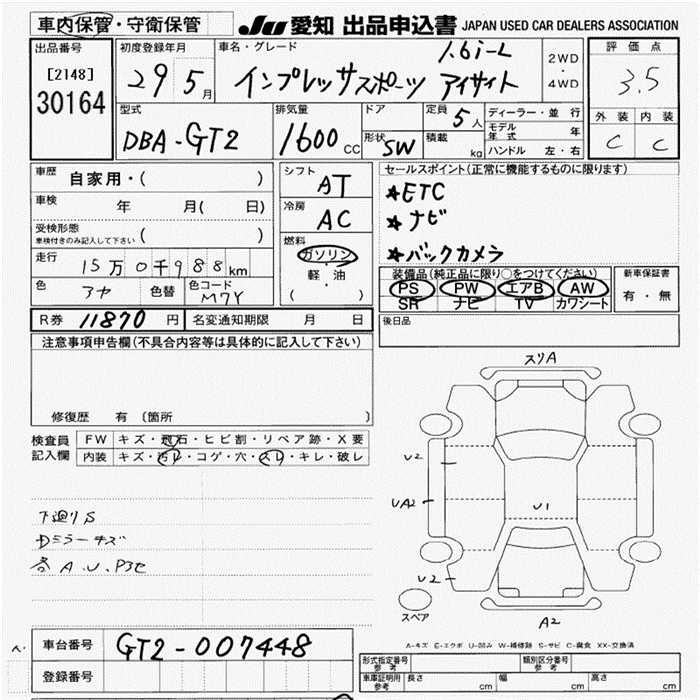 車内保管・守衛保管
JU 愛知 出品申込書 JAPAN USED CAR DEALERS ASSOCIATION
出品番号 [2148] 30164
初度登録年月 29 5月
車名・グレード 1.6i-L
インプレッサスポーツ アイサイト
2WD・4WD
評価点 3.5
外装 C 内装 C
型式 DBA-GT2
排気量 1600cc
ドア
形状 SW
定員 5人
積載 kg
ディーラー・並行
モデル年式 年
ハンドル 左・右
車歴 自家用・( )
車検 年 月( 日)
受検形態 車検付きのみ記入して下さい ( )
走行 15万0千988km
色 アヤ 色替 色コード M7Y
シフト AT
冷房 AC
燃料 ガソリン・軽・油 ( )
セールスポイント(正常に機能するものに限ります)
★ETC
★ナビ
★バックカメラ
装備品(純正品に限り○をつけてください)
PS PW エアB AW
SR ナビ TV カワシート
新車保証書 有・無
R券 11870円 名変通知期限 月 日
後日品
注意事項申告欄(不具合内容等は具体的に記入して下さい)
修復歴 有 〔箇所 〕
検査員記入欄
FW キズ・飛石・ヒビ割・リペア跡・X要
内装 キズ・汚レ・コゲ・穴・スレ・キレ・破レ
下廻りS
Dミラーキズ
各A.U.P3セ
スリA
U2
UA2
U1
U2
スペア
A2
A-キズ E-エクボ U-凹み W-補修跡 S-サビ C-腐食 XX-交換済
車台番号 GT2-007448
登録番号
形式指定番号 参考
類別区分番号 参考
車庫証明用 参考 長さ cm 幅 cm 高さ cm